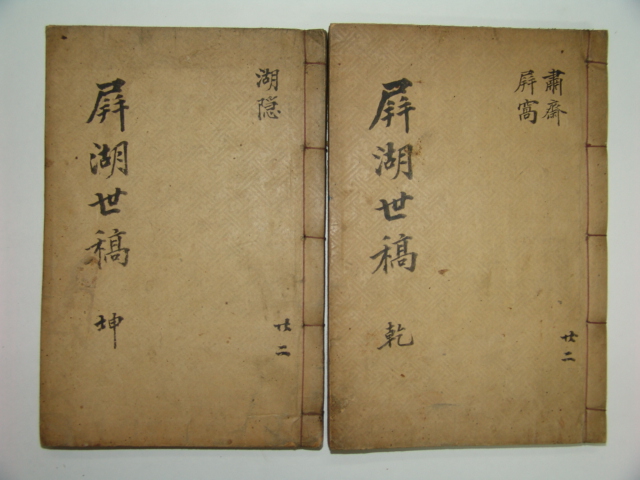 肅齋
屛窩
屛湖世稿
乾
廿二
湖隱
屛湖世稿
坤
廿二